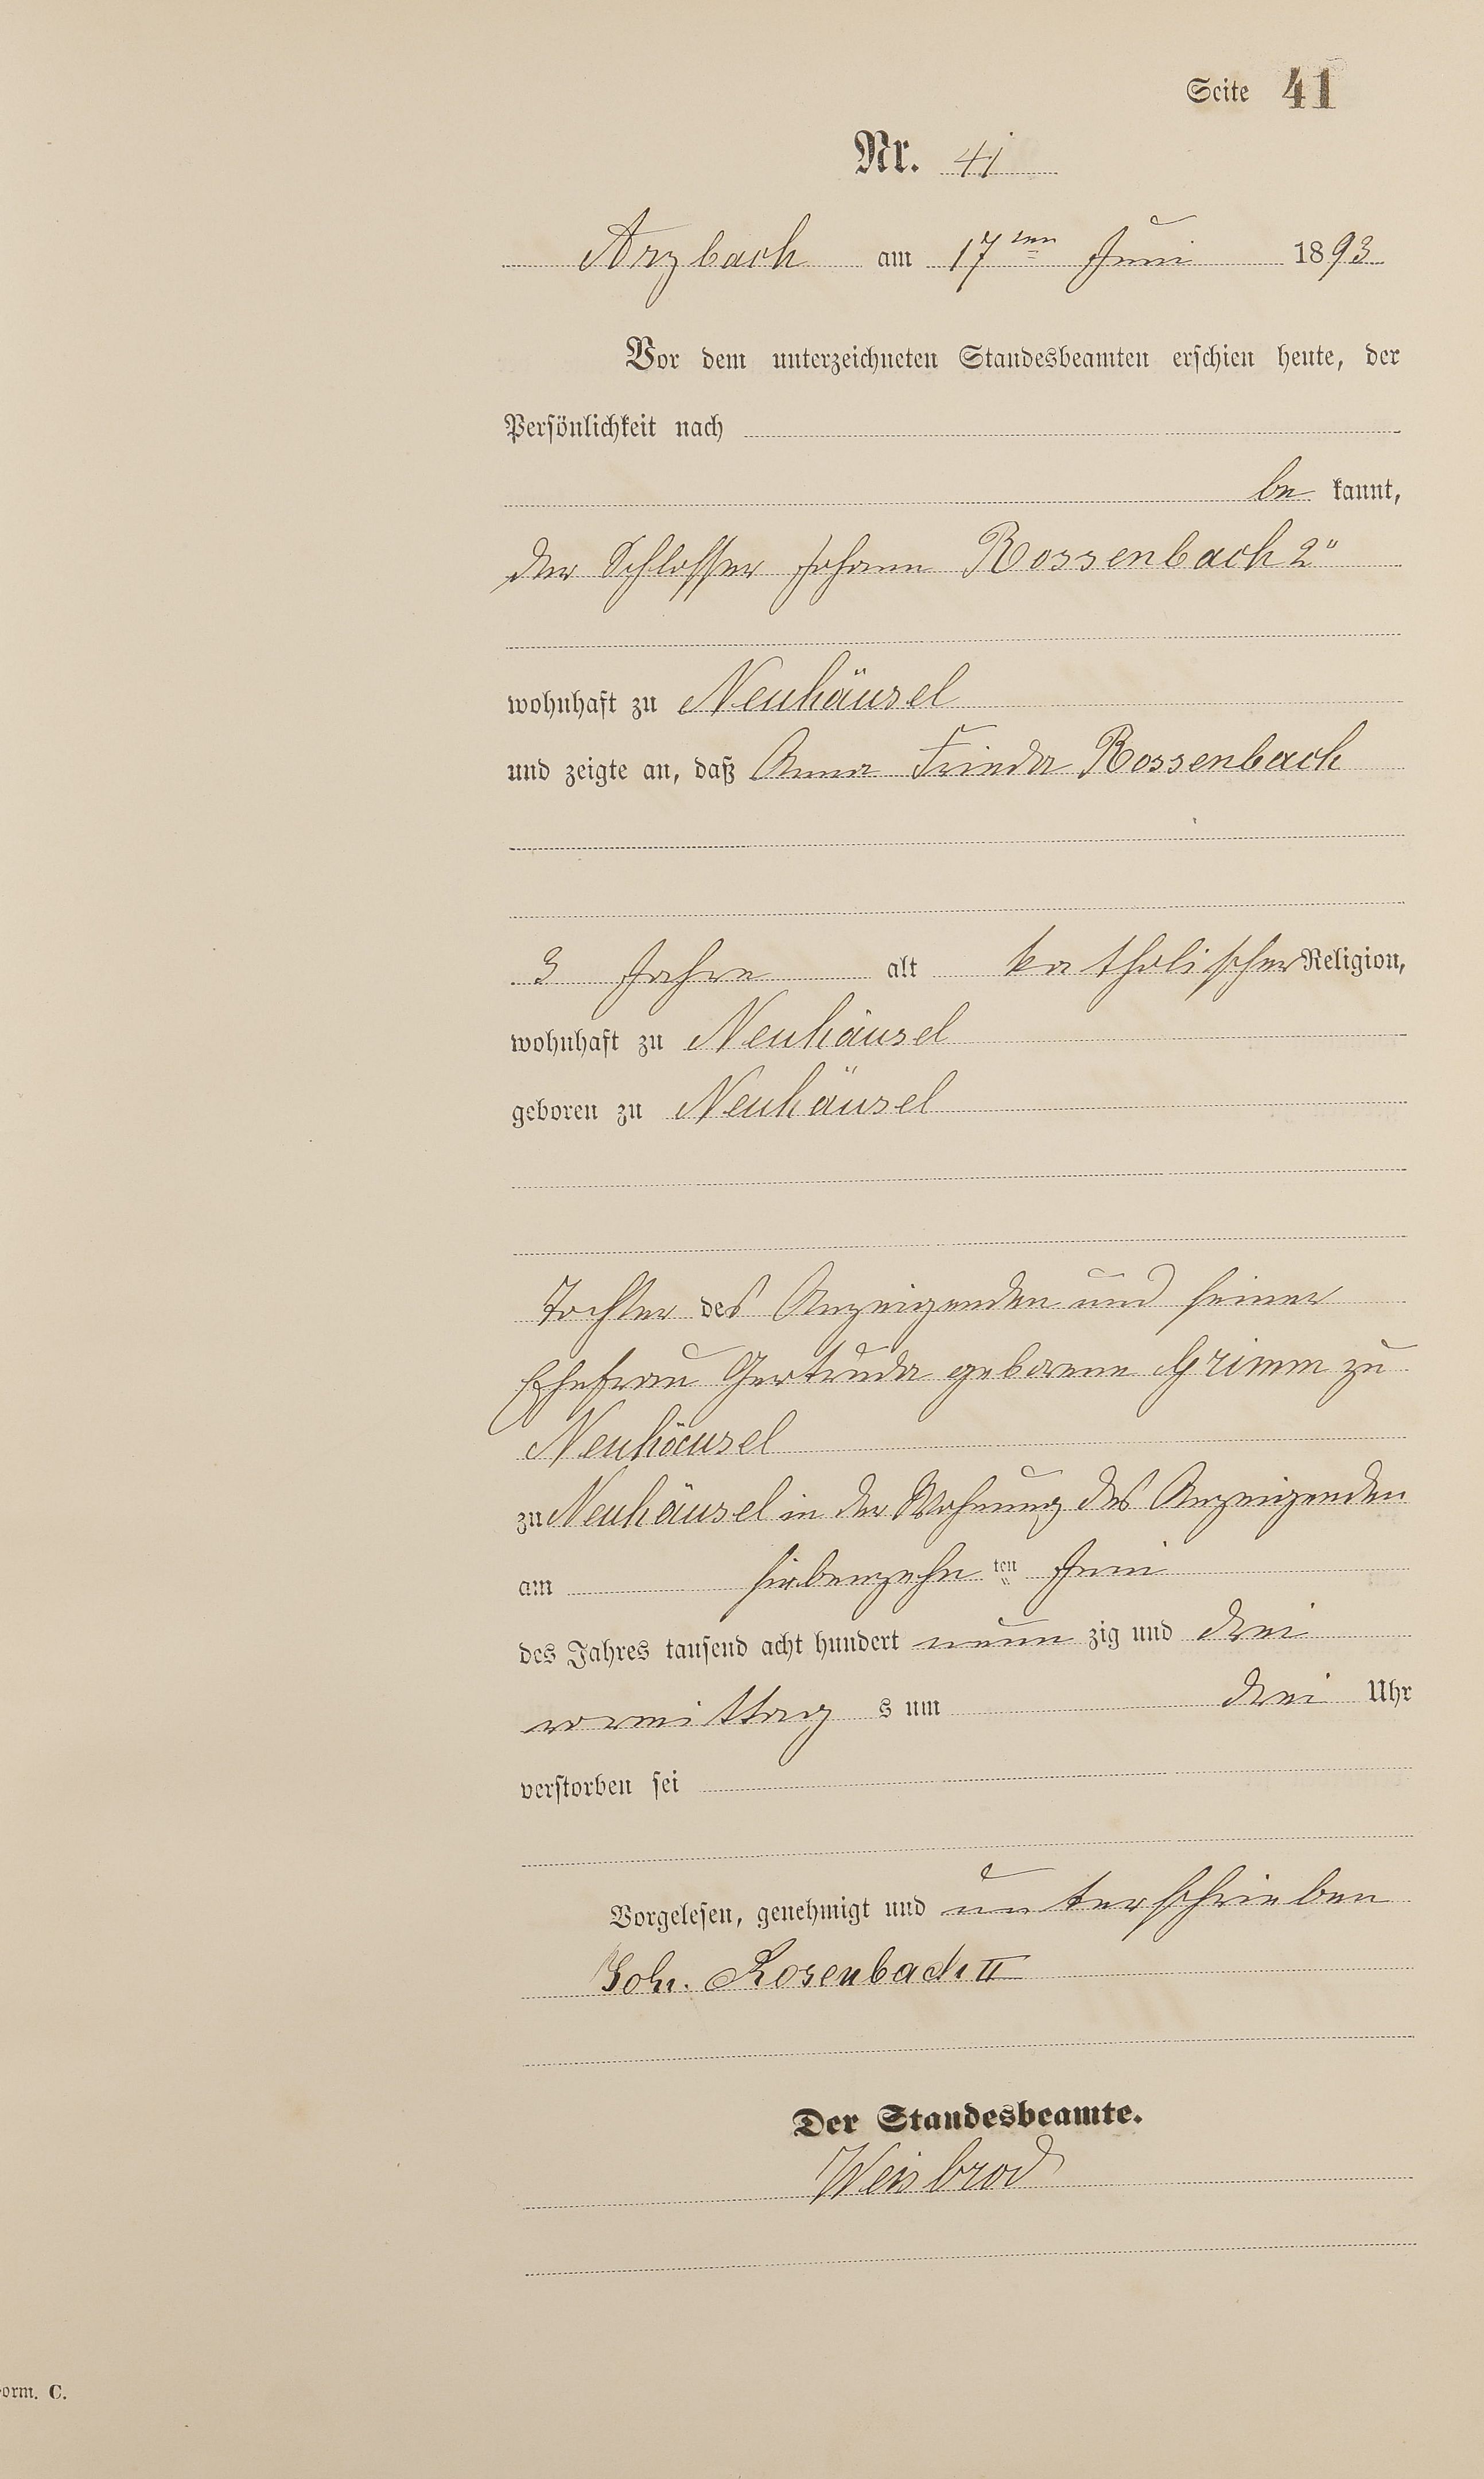 Seite 41
Nr. 41
Arzbach am 17ten Juni 1893
Vor dem unterzeichneten Standesbeamten erschien heute, der
Persönlichkeit nach
be kannt,
der Schlosser Johann Rossenbach 2"
wohnhaft zu Neuhäusel
und zeigte an, daß Anna Frieda Rossenbach
3 Jahre alt katholischer Religion,
wohnhaft zu Neuhäusel
geboren zu Neuhäusel
Tochter des Anzeigenden und seiner
Ehefrau Gertruda geborene Grimm zu
Neuhäusel
zu Neuhäusel in der Wohnung des Anzeigenden
am siebenzehn ten Juni
des Jahres tausend acht hundert neun zig und drei
vormittag s um drei Uhr
verstorben sei
Vorgelesen, genehmigt und unterschrieben
Joh. Rosenbach II
Der Standesbeamte.
Weisbrod
orm. C.